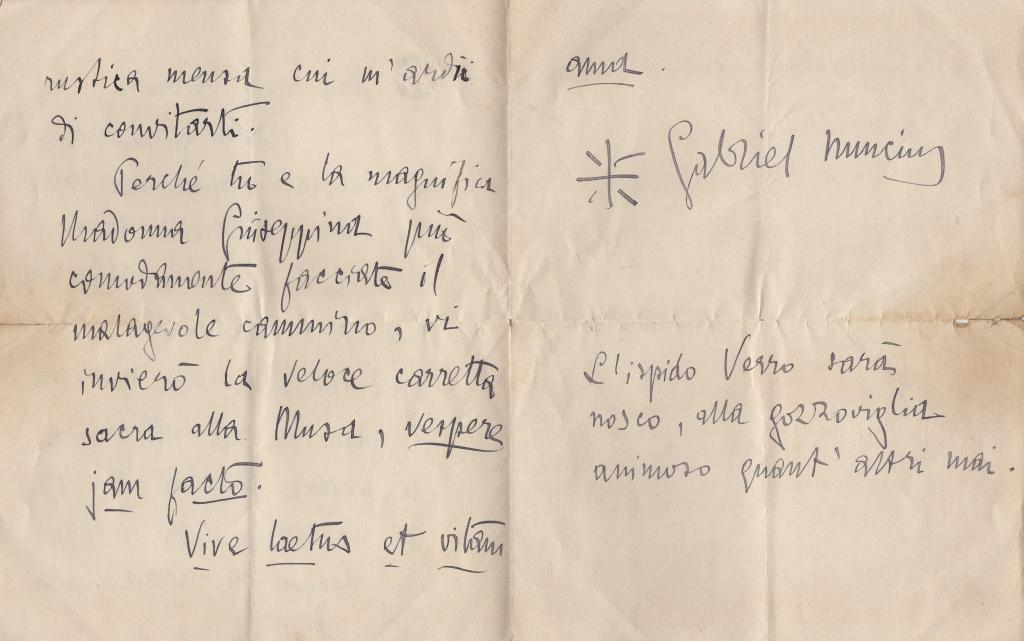 rustica mensa cui m'ardii
di convitarti.
Perché tu e la magnifica
Madonna Giuseppina più
comodamente facciate il
malagevole cammino, vi
invierò la veloce carretta
sacra alla Musa, vespere
jam facto.
Vive laetus et vitam
ama.
Gabriel Nuncius
L'ispido Verro sarà
nosco, alla gozzoviglia
animoso quant'altri mai.